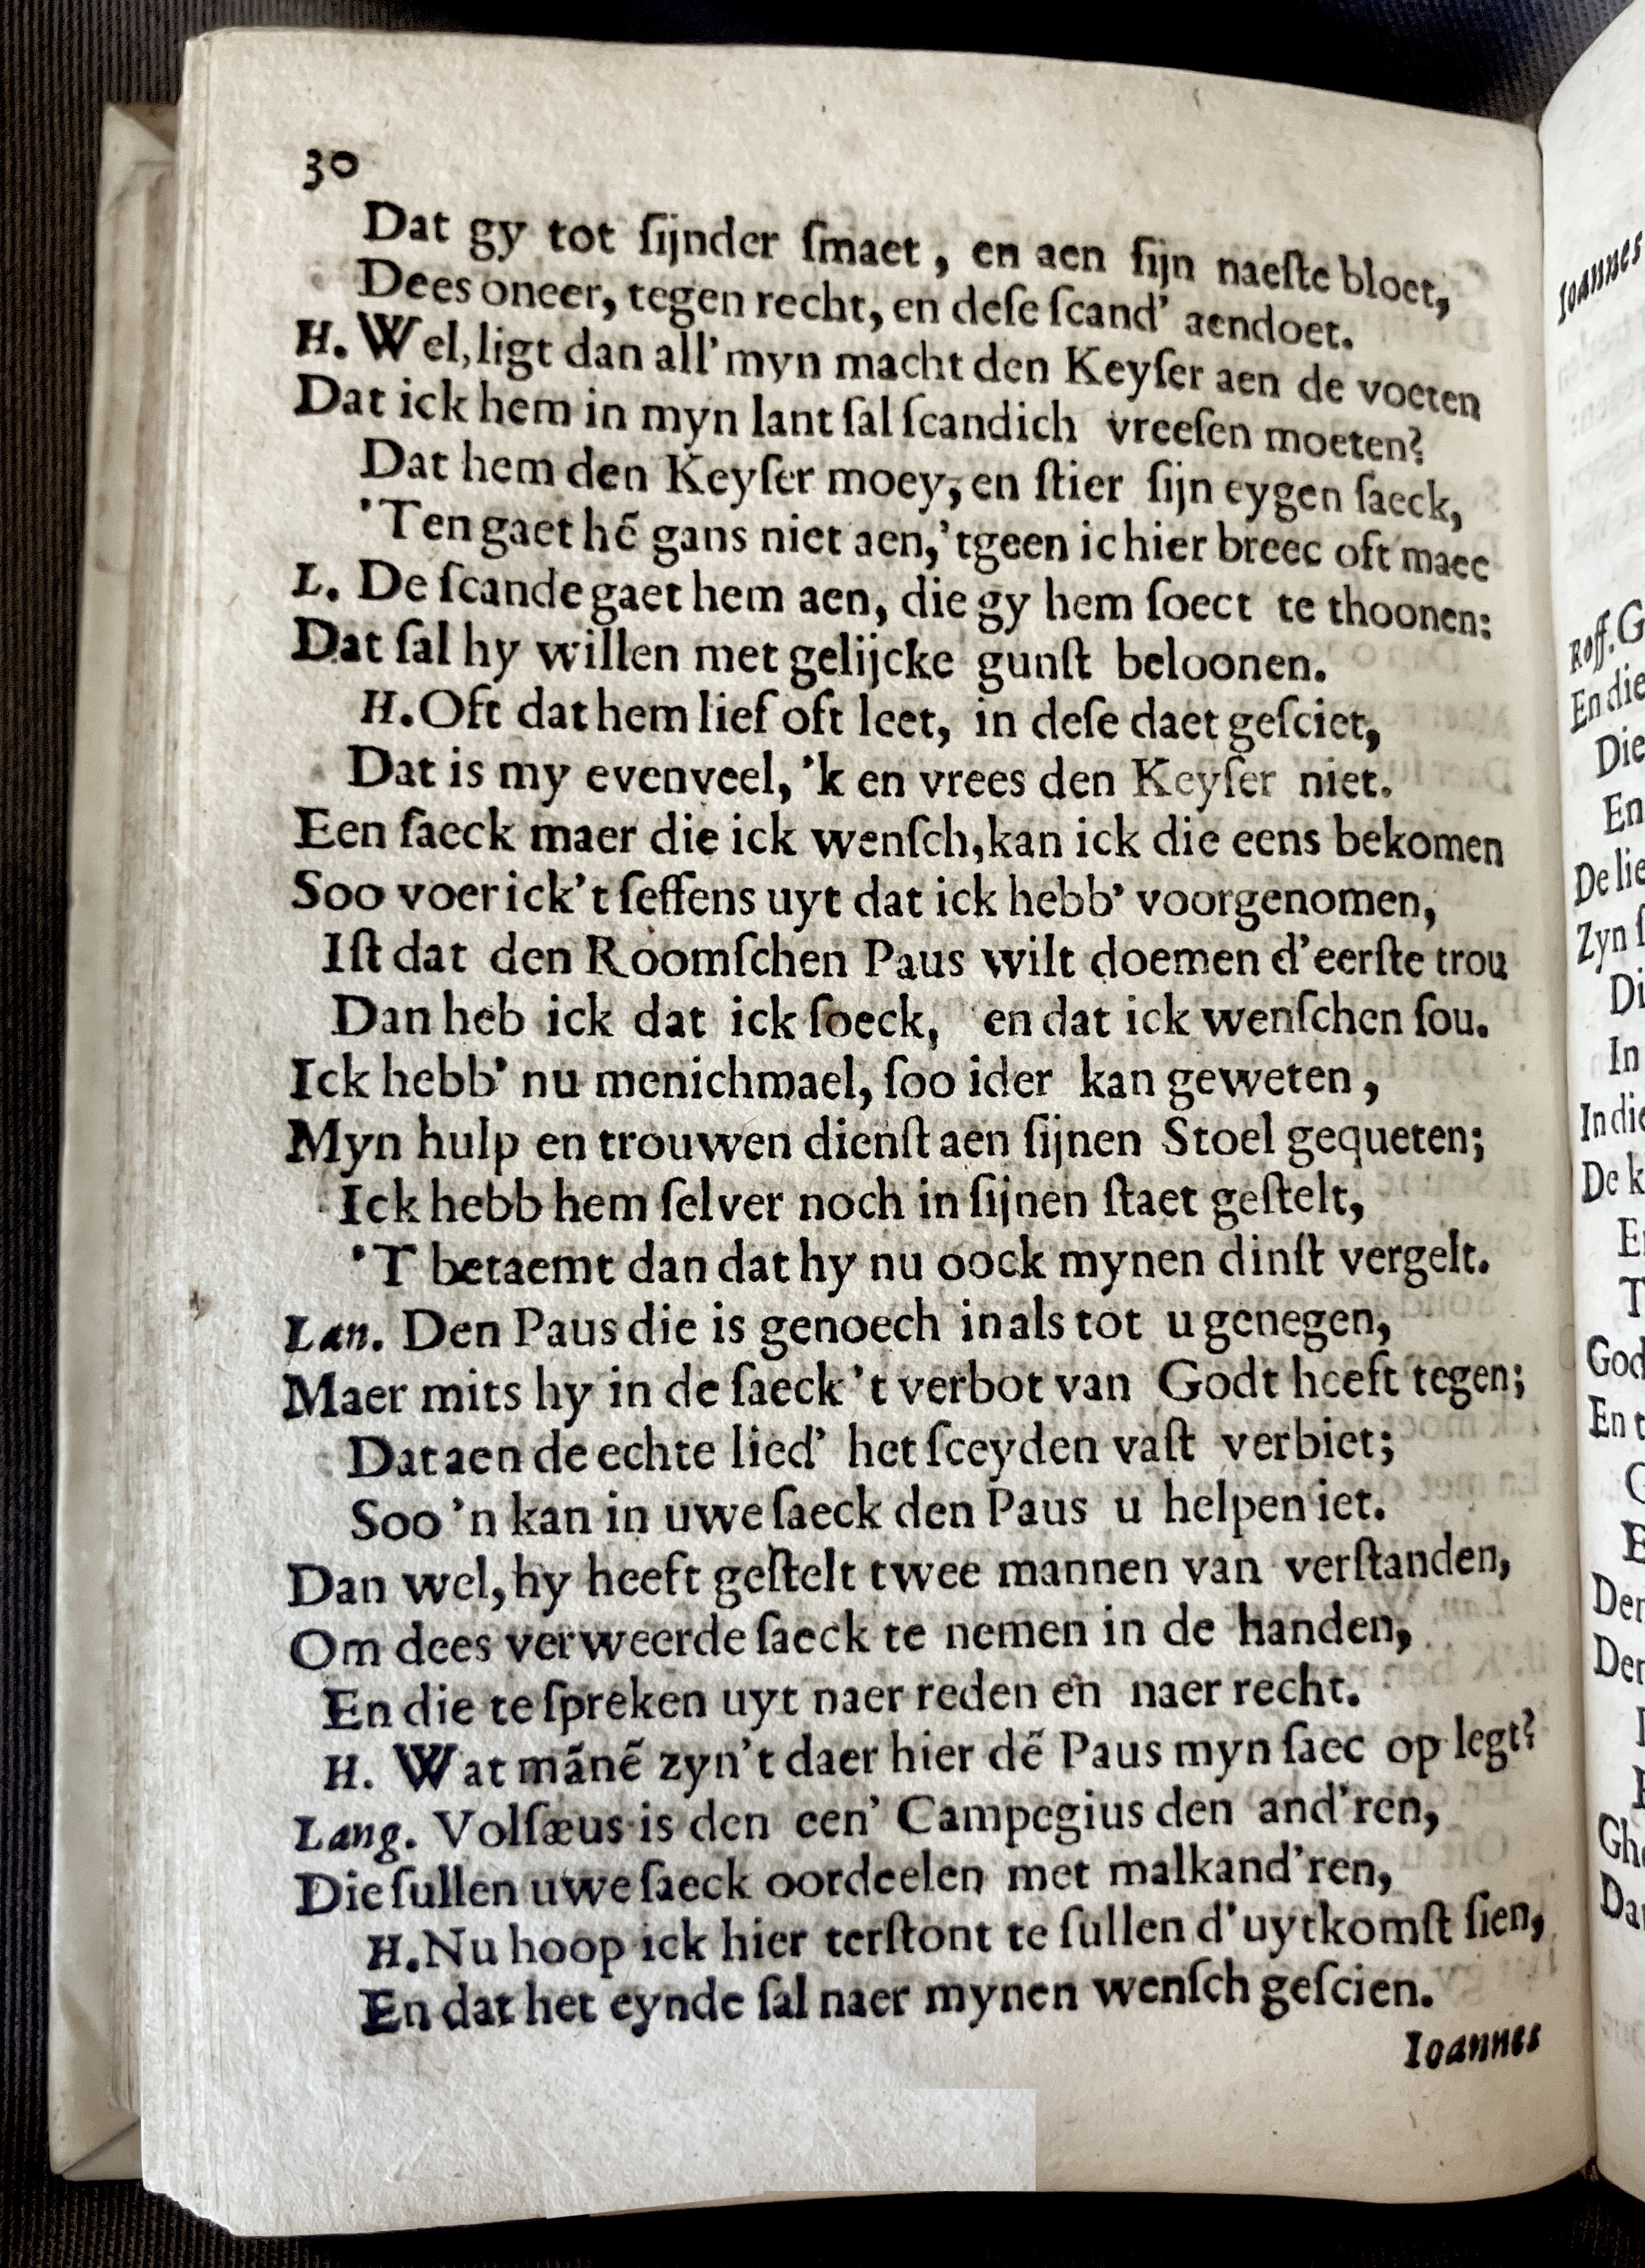 30
Dat gy tot ſijnder ſmaet, en aen ſijn naeſte bloet,
Dees oneer, tegen recht, en deſe ſcand' aendoet.
H. Wel, ligt dan all' myn macht den Keyſer aen de voeten
Dat ick hem in myn lant ſal ſcandich vreeſen moeten?
Dat hem den Keyſer moey, en ſtier ſijn eygen ſaeck,
'Ten gaet hẽ gans niet aen, 'tgeen ic hier breec oft maec
L. De ſcande gaet hem aen, die gy hem ſoect te thoonen:
Dat ſal hy willen met gelijcke gunſt beloonen.
H. Oft dat hem lief oft leet, in deſe daet geſciet,
Dat is my evenveel, 'k en vrees den Keyſer niet.
Een ſaeck maer die ick wenſch, kan ick die eens bekomen
Soo voer ick't ſeffens uyt dat ick hebb' voorgenomen,
Iſt dat den Roomſchen Paus wilt doemen d'eerſte trou
Dan heb ick dat ick ſoeck, en dat ick wenſchen ſou.
Ick hebb' nu menichmael, ſoo ider kan geweten,
Myn hulp en trouwen dienſt aen ſijnen Stoel gequeten;
Ick hebb hem ſelver noch in ſijnen ſtaet geſtelt,
'T betaemt dan dat hy nu oock mynen dinſt vergelt.
Lan. Den Paus die is genoech in als tot u genegen,
Maer mits hy in de ſaeck 't verbot van Godt heeft tegen;
Dat aen de echte lied' het ſceyden vaſt verbiet;
Soo 'n kan in uwe ſaeck den Paus u helpen iet.
Dan wel, hy heeft geſtelt twee mannen van verſtanden,
Om dees verweerde ſaeck te nemen in de handen,
En die te ſpreken uyt naer reden en naer recht.
H. Wat mãnẽ zyn't daer hier dẽ Paus myn ſaec op legt?
Lang. Volſæus is den een' Campegius den and'ren,
Die ſullen uwe ſaeck oordeelen met malkand'ren,
H. Nu hoop ick hier terſtont te ſullen d'uytkomſt ſien,
En dat het eynde ſal naer mynen wenſch geſcien.
Ioannes
Ioannes
Roff. G
En die
Die
En
De lie
Zyn ſ
Di
In
In die
De k
God
En t